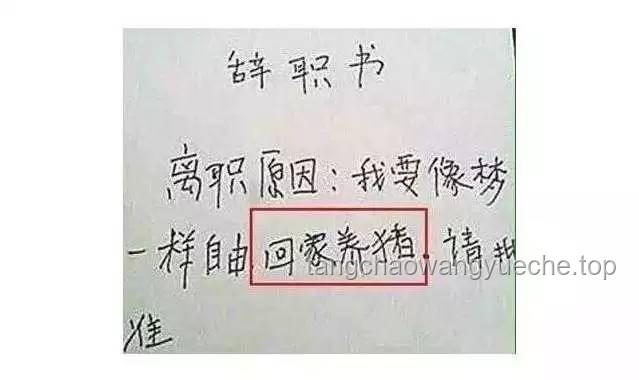 辞职书
离职原因:我要像梦
一样自由,回家养猪.请批
准
tangchaowangyueche.top